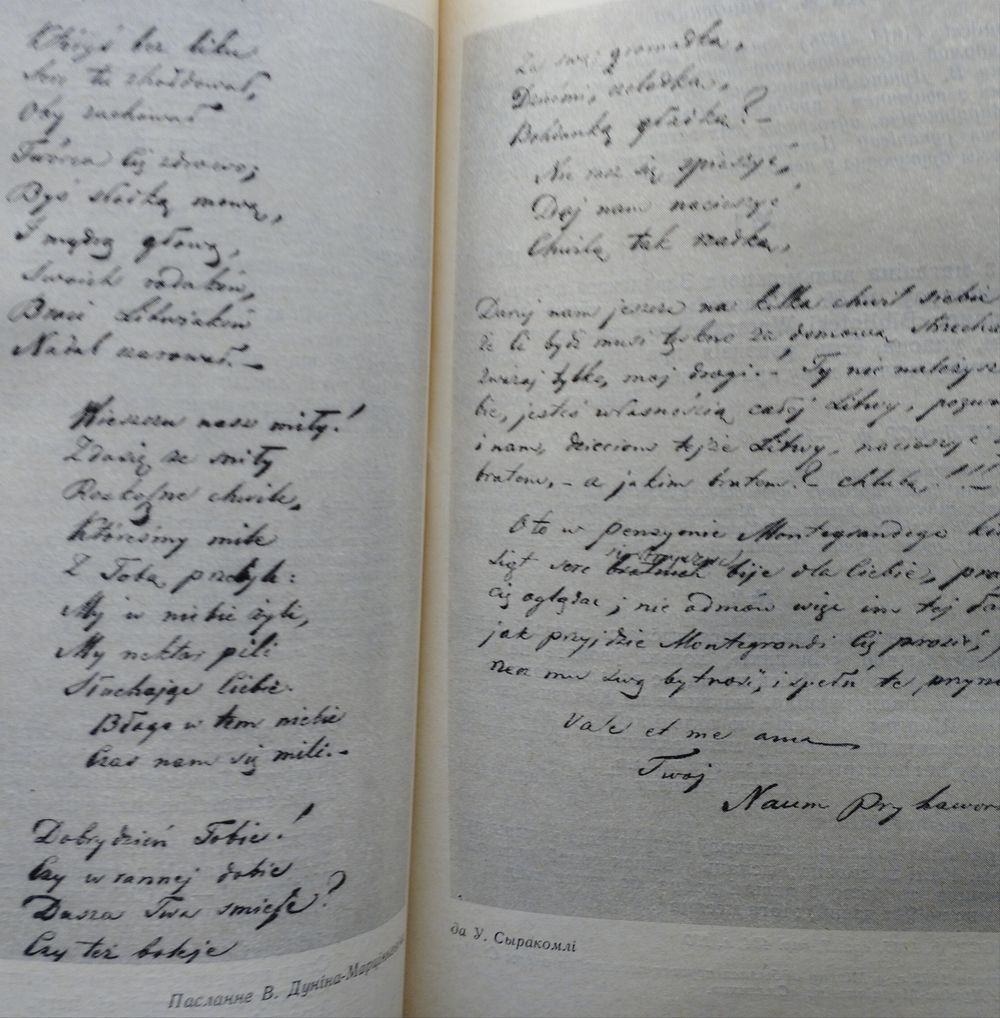 Któryś bez liku
Serc tu zhołdował,
Oby zachował
Twórca Cię zdrowo;
Byś słodką mową,
I mądrą głową,
Swoich rodaków,
Braci Litwiaków
Nadal czarował.—
Wieszczu nasz miły!
Zdają się sniły
Rozkoszne chwile,
Któreśmy mile
Z Tobą przebyli:
My w niebie żyli,
My nektar pili
Słuchając Ciebie.
Błogo w tem niebie
Czas nam się mili.—
Dobrydzień Tobie!
Czy w rannej dobie
Dusza Twa smieje?
Czy też boleje
Za swoją gromadką,
Dziećmi, czeladką,
Bohdanką gładką?—
Nie racz się spieszyć,
Daj nam nacieszyć
Chwilą tak rzadką,
Daruj nam jeszcze na kilka chwil siebie
że Ci być musi tęskno za domową strzechą
zważaj tylko, mój drogi! Ty nie należysz
bie, jesteś własnością całej Litwy,
i nam, dzieciom tejże Litwy, nacieszyć
bratem,— a jakim bratem? chlubą!!!—
Oto w pensyonie Montegrandego
siąt serc bratnich bije dla Ciebie,
Cię oglądać; nie odmów więc im tej
jak przyjdzie Montegrandi Cię prosić,
mu swą bytność, i spełń te
Vale et me ama
Twój
Naum Pryhawor
Пасланне В. Дуніна-Марцінкевіча
да У. Сыракомлі